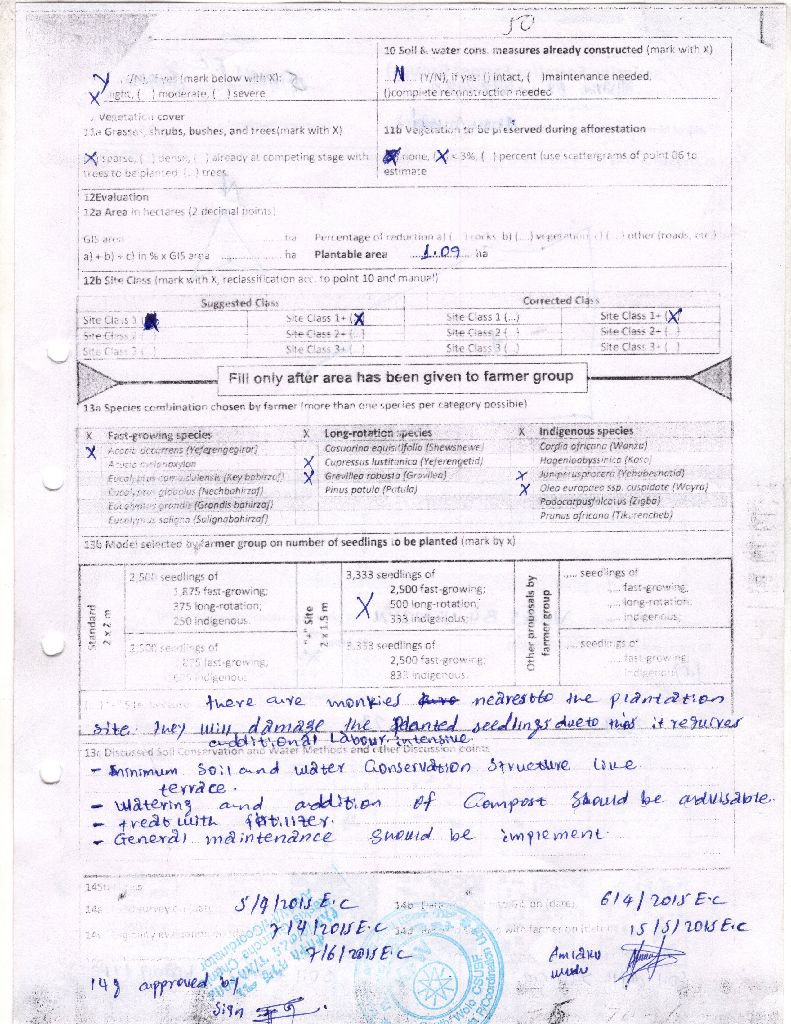 50
10 Soil & water cons. measures already constructed (mark with X)
Y /N), if yes (mark below with X):
N (Y/N), if yes: () intact, ( )maintenance needed,
X ight, ( ) moderate, ( ) severe
()complete reconstruction needed
Vegetation cover
11a Grasses, shrubs, bushes, and trees(mark with X)
11b Vegetation to be preserved during afforestation
X sparse, ( ) dense, ( ) already at competing stage with
none, (X < 3%, ( ) percent (use scattergrams of point 06 to
trees to be planted (..) trees
estimate
12Evaluation
12a Area in hectares (2 decimal points)
GIS area ha Percentage of reduction a) (...) rocks b) (...) vegetation c) (...) other (roads, etc.)
a) + b) + c) in % x GIS area ............ ha Plantable area 1.09 ha
12b Site Class (mark with X, reclassification acc. to point 10 and manual)
Suggested Class Corrected Class
Site Class 1 ( Site Class 1+ (X Site Class 1 (...) Site Class 1+ (X)
Site Class 2 Site Class 2+ (..) Site Class 2 (..) Site Class 2+ ( )
Site Class 3 ( ) Site Class 3+ ( ) Site Class 3 ( ) Site Class 3+ ( )
Fill only after area has been given to farmer group
13a Species combination chosen by farmer (more than one species per category possible)
X Fast-growing species X Long-rotation species X Indigenous species
X Acacia decurrens (Yeferengegirar) Casuarina equisitifolia (Shewshewe) Cordia africana (Wanza)
Acacia melanoxylon X Cupressus lusitanica (Yeferengetid) Hageniaabyssinica (Koso)
Eucalyptus camaldulensis (Key bahirzaf) X Grevillea robusta (Gravilea) X Juniperusprocera (Yehabeshatid)
Eucalyptus globulus (Nechbahirzaf) Pinus patula (Patula) X Olea europaea ssp. cuspidate (Wayra)
Eucalyptus grandis (Grandis bahirzaf) Podocarpusfalcatus (Zigba)
Eucalyptus saligna (Salignabahirzaf) Prunus africana (Tikurencheb)
13b Model selected by farmer group on number of seedlings to be planted (mark by x)
Standard
2 x 2 m
2,500 seedlings of
1,875 fast-growing;
375 long-rotation;
250 indigenous.
2,500 seedlings of
875 fast-growing;
indigenous
"+" Site
2 x 1.5 m
X
3,333 seedlings of
2,500 fast-growing;
500 long-rotation;
333 indigenous;
3,333 seedlings of
2,500 fast-growing;
833 indigenous.
Other proposals by
farmer group
..... seedlings of
.... fast-growing
.... long-rotation;
indigenous;
..... seedlings of
.... fast-growing
indigenous
there are monkies nearest to the plantation
site. They will damage the planted seedlings due to this it requires
additional Labour intensive
13c Discussed Soil Conservation and Water Methods and other Discussion points
- Minimum Soil and water Conservation Structure like
terrace.
- Watering and addition of Compost should be advisable.
- treat with fertilizer.
- General maintenance should be implement.
14a 5/9/2015 E.C 14b on (date) 6/4/2015 E.C
7/4/2015 E.C with farmer on 15/5/2015 E.C
7/6/2015 E.C
14g approved by
Sign